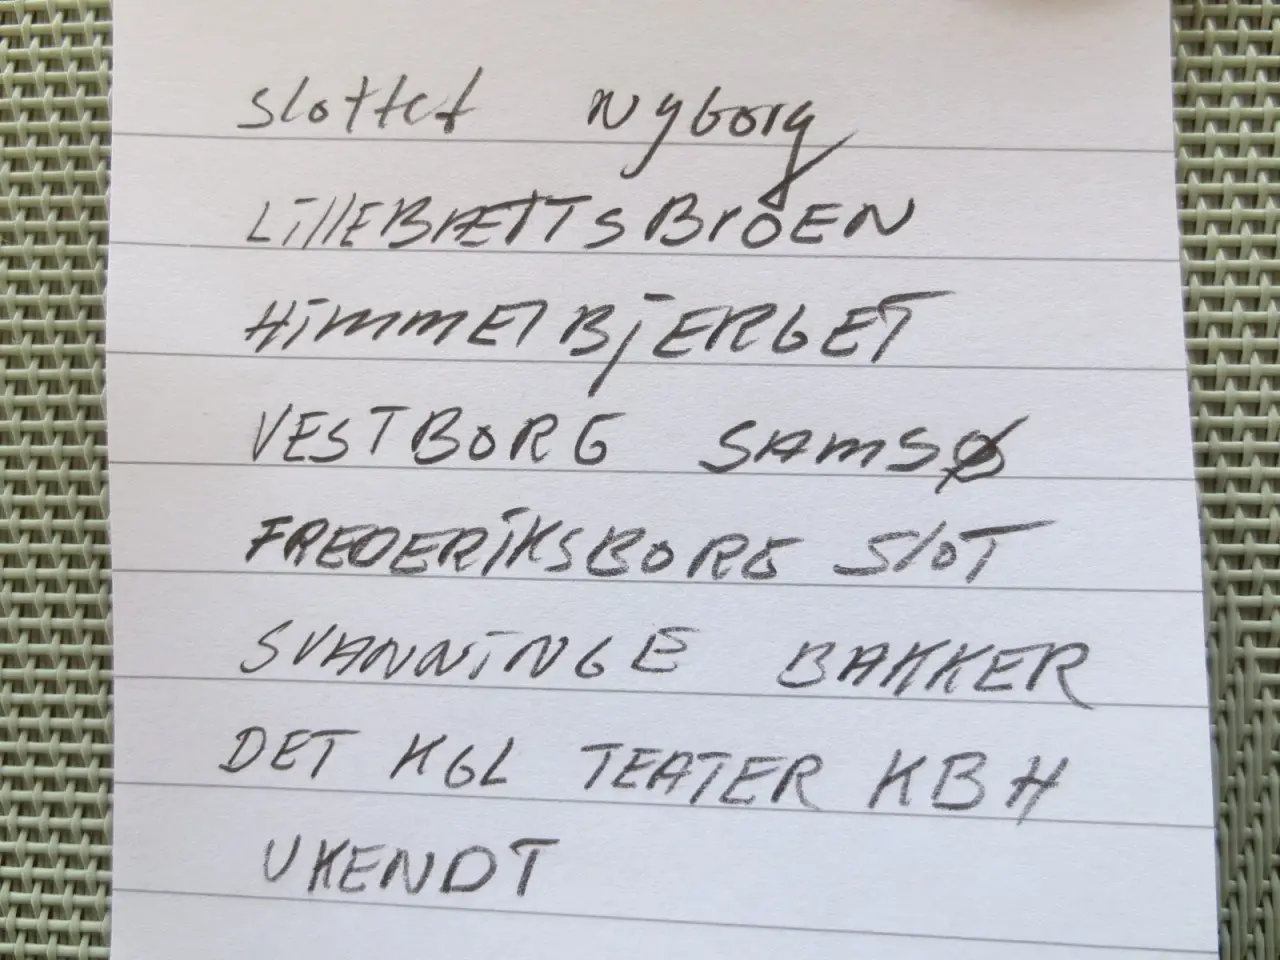 slottet Nyborg
LillEBÆTTSBrOEN
HimmElBjERGET
VESTBORG SAMSØ
FREDERiKSBORG SlOT
SVANNiNGE BAKKER
DET KGL TEATER KBH
UKENDT